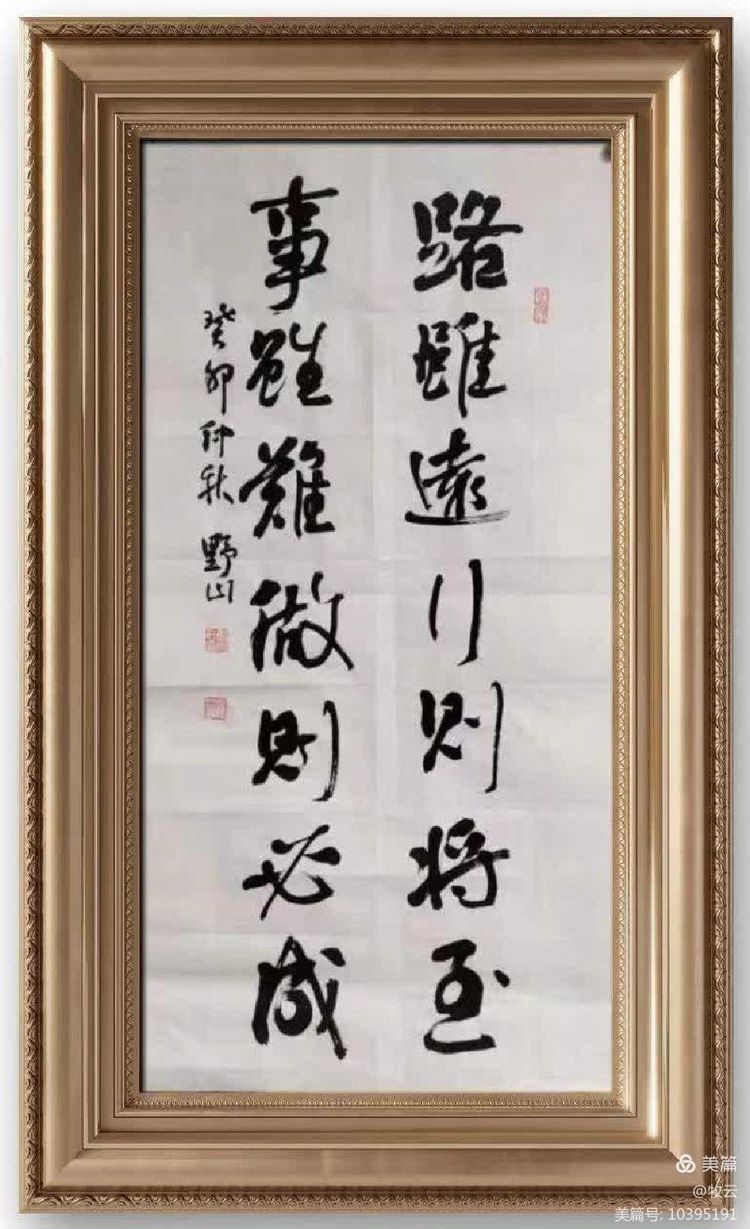 路雖遠行则将至
事雖難做则必成
癸卯仲秋 野山
美篇
@牧云
美篇号: 10395191